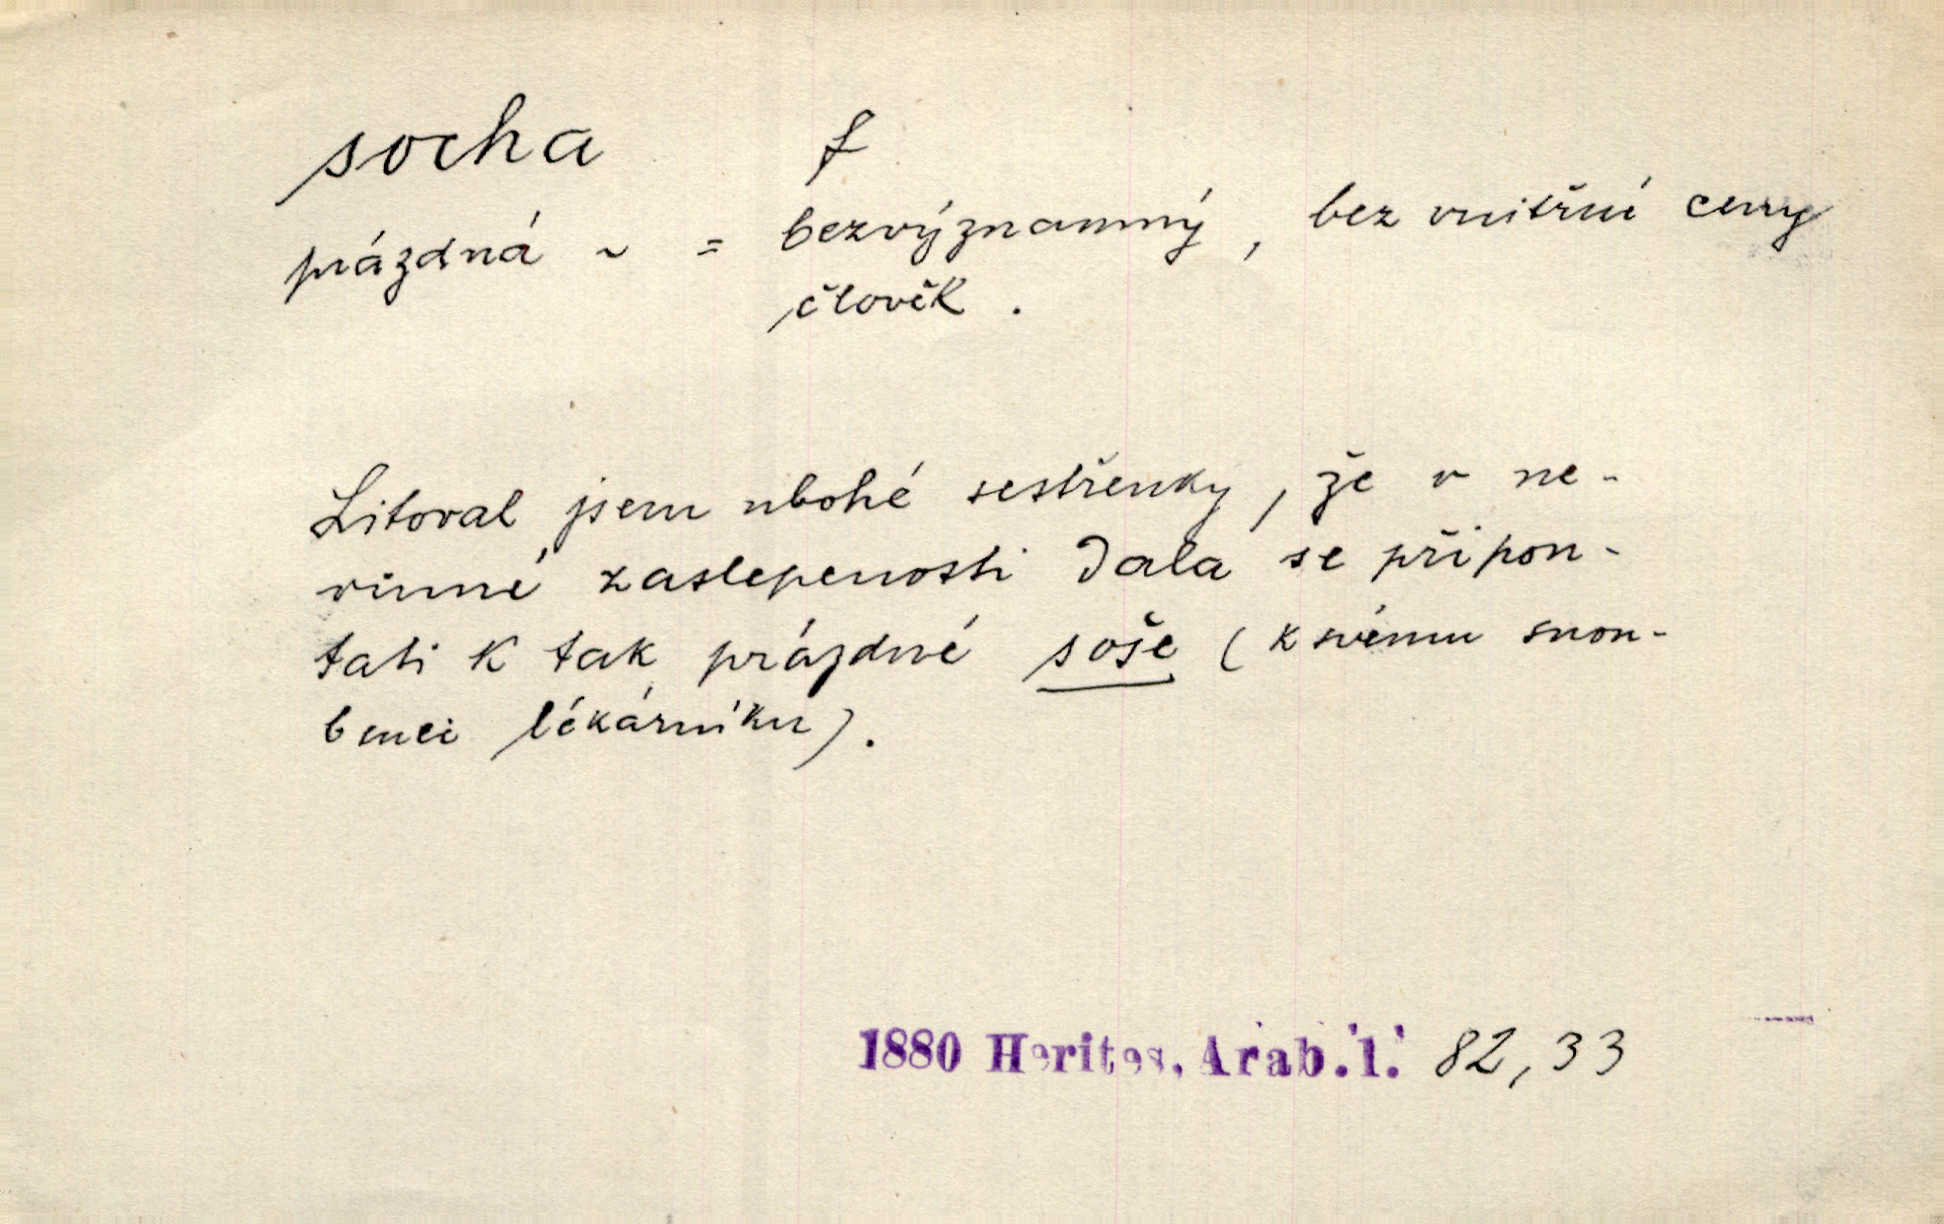 socha f
prázdná ~ = bezvýznamný, bez vnitřní ceny
člověk.
Litoval jsem ubohé sestřenky, že v ne-
vinné zaslepenosti dala se připou-
tati k tak prázdné soše (k svému snou-
benci lékárníku).
1880 Herites, Arab. 1. 82, 33